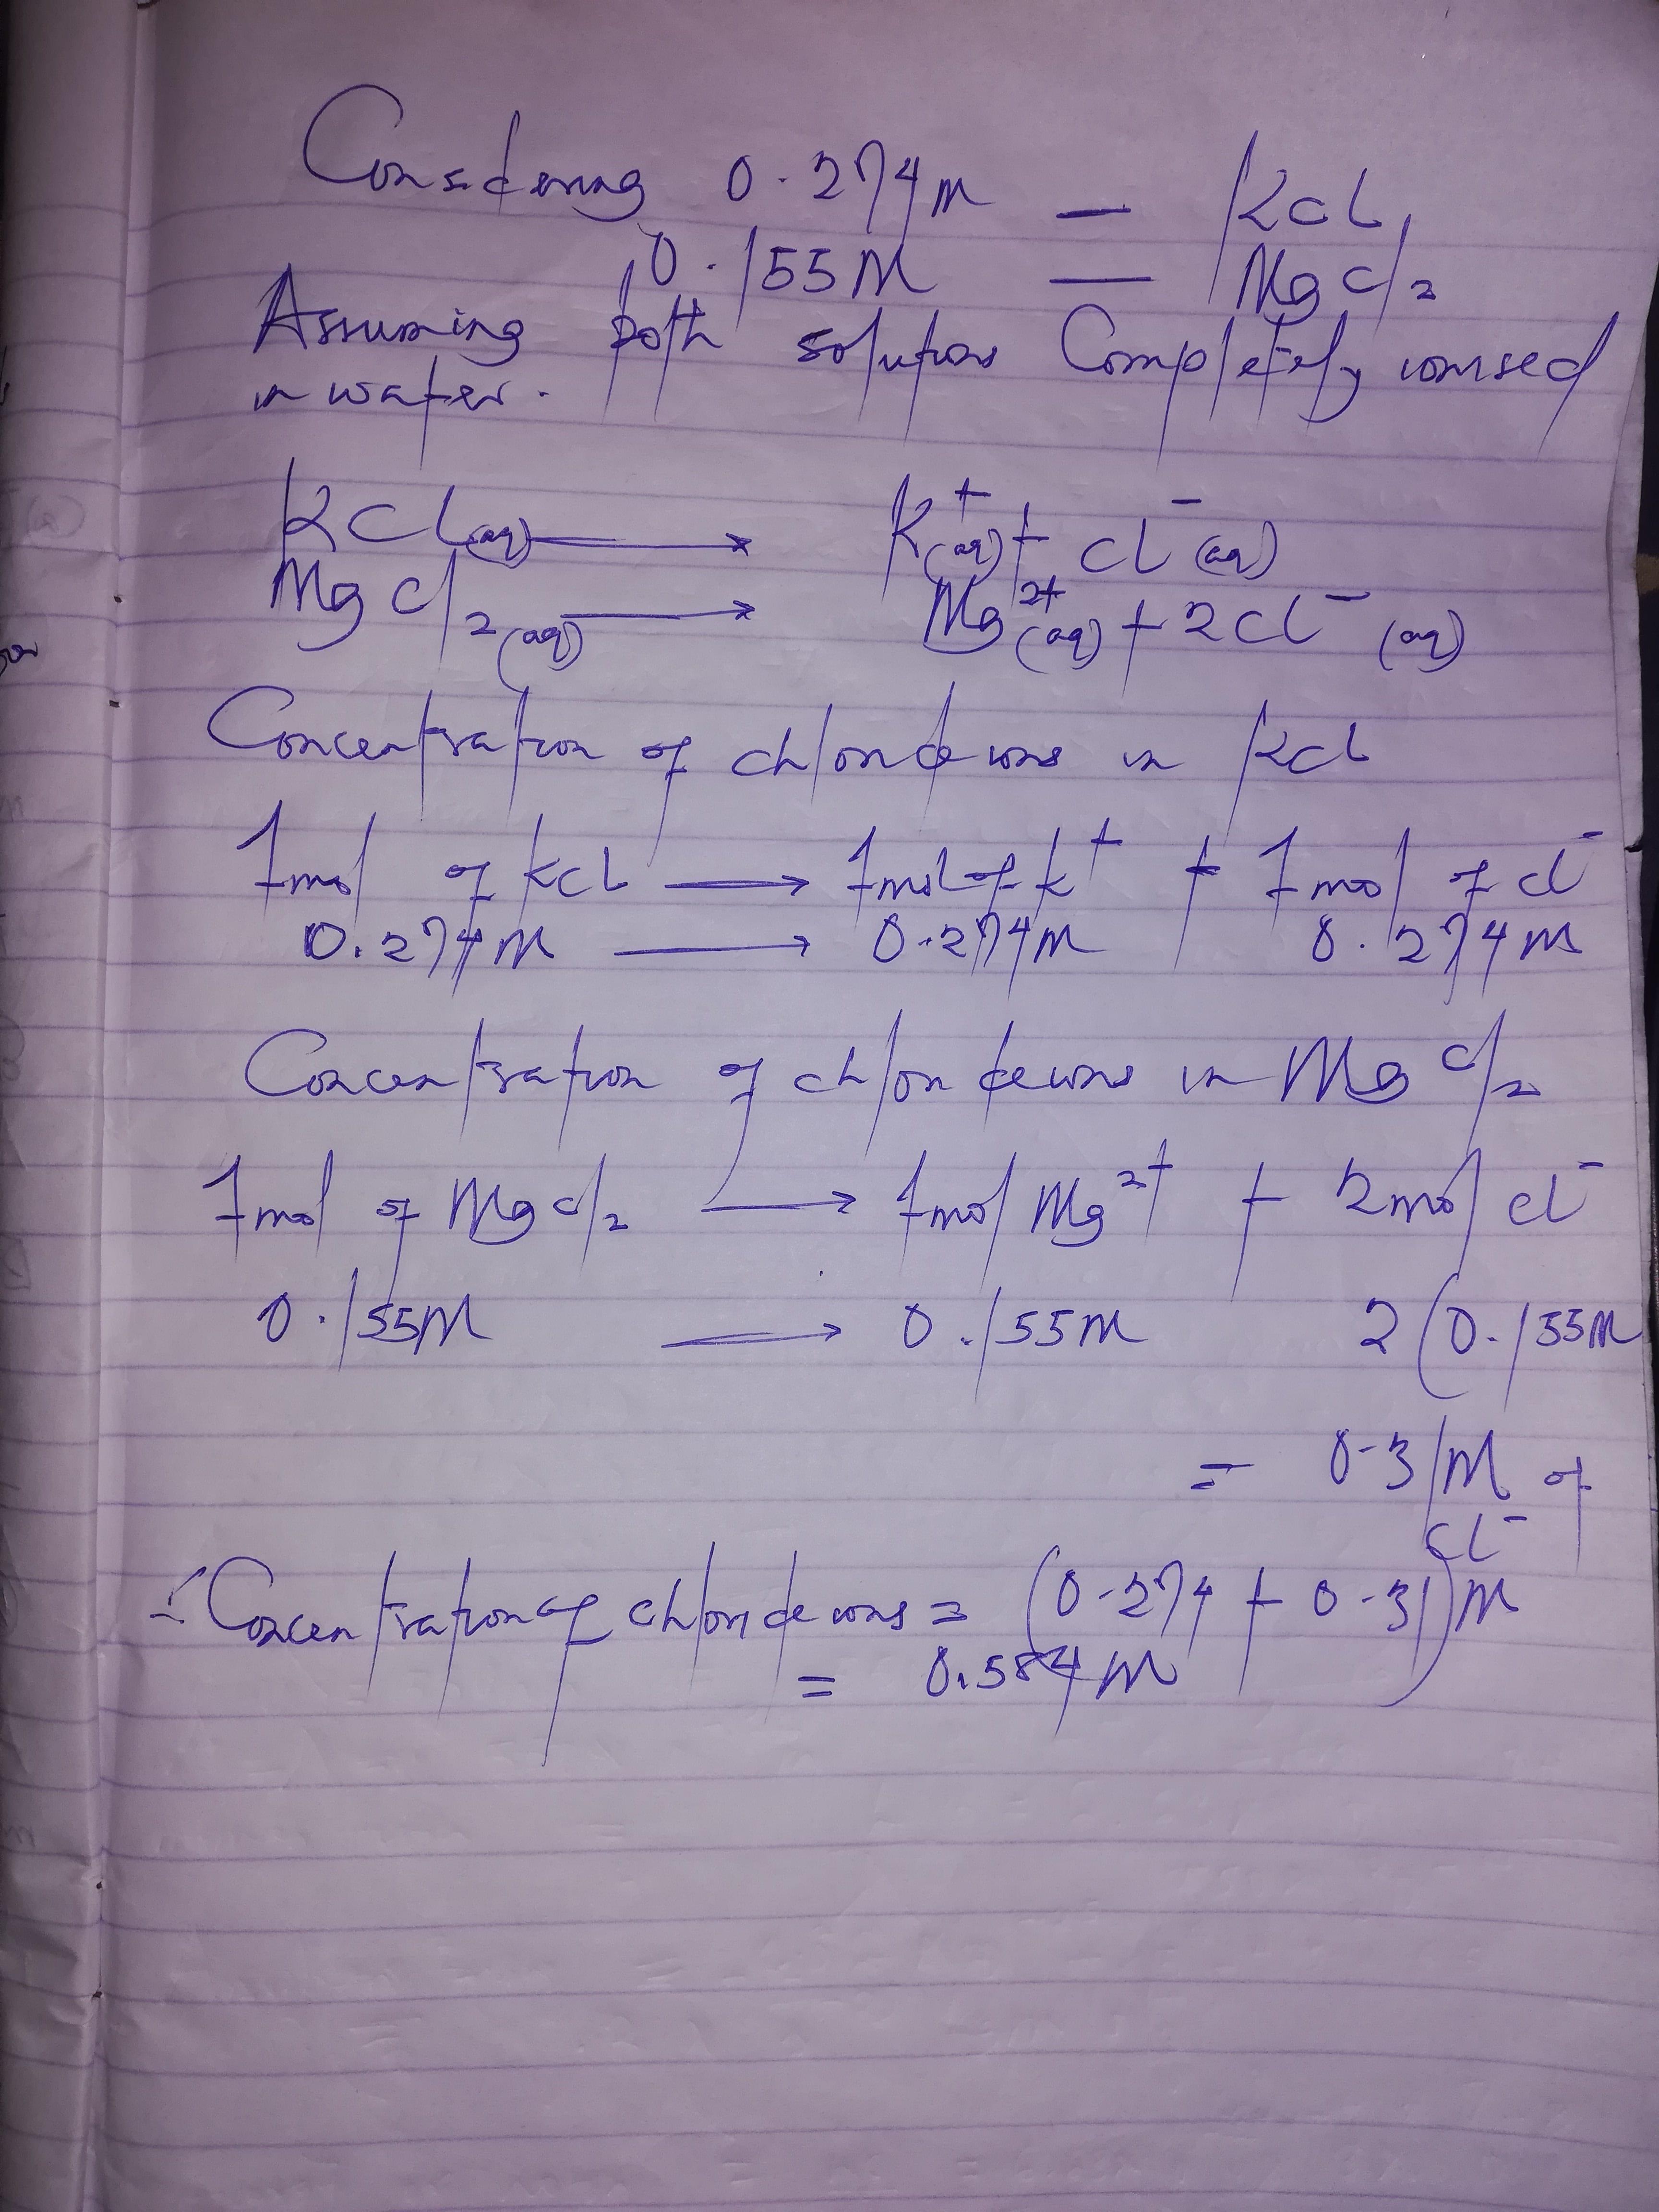 Considering 0.274M — KCl
0.155M — MgCl2
Assuming both solutions Completely ionised
in water.
KCl(aq) → K+(aq) + Cl-(aq)
MgCl2(aq) → Mg2+(aq) + 2Cl-(aq)
Concentration of chloride ions in KCl
1mol of KCl → 1mol of K+ + 1mol of Cl-
0.274M → 0.274M 0.274M
Concentration of chloride ions in MgCl2
1mol of MgCl2 → 1mol Mg2+ + 2mol Cl-
0.155M → 0.155M 2(0.155M
= 0.31M of
Cl-
∴ Concentration of chloride ions = (0.274 + 0.31)M
= 0.584M